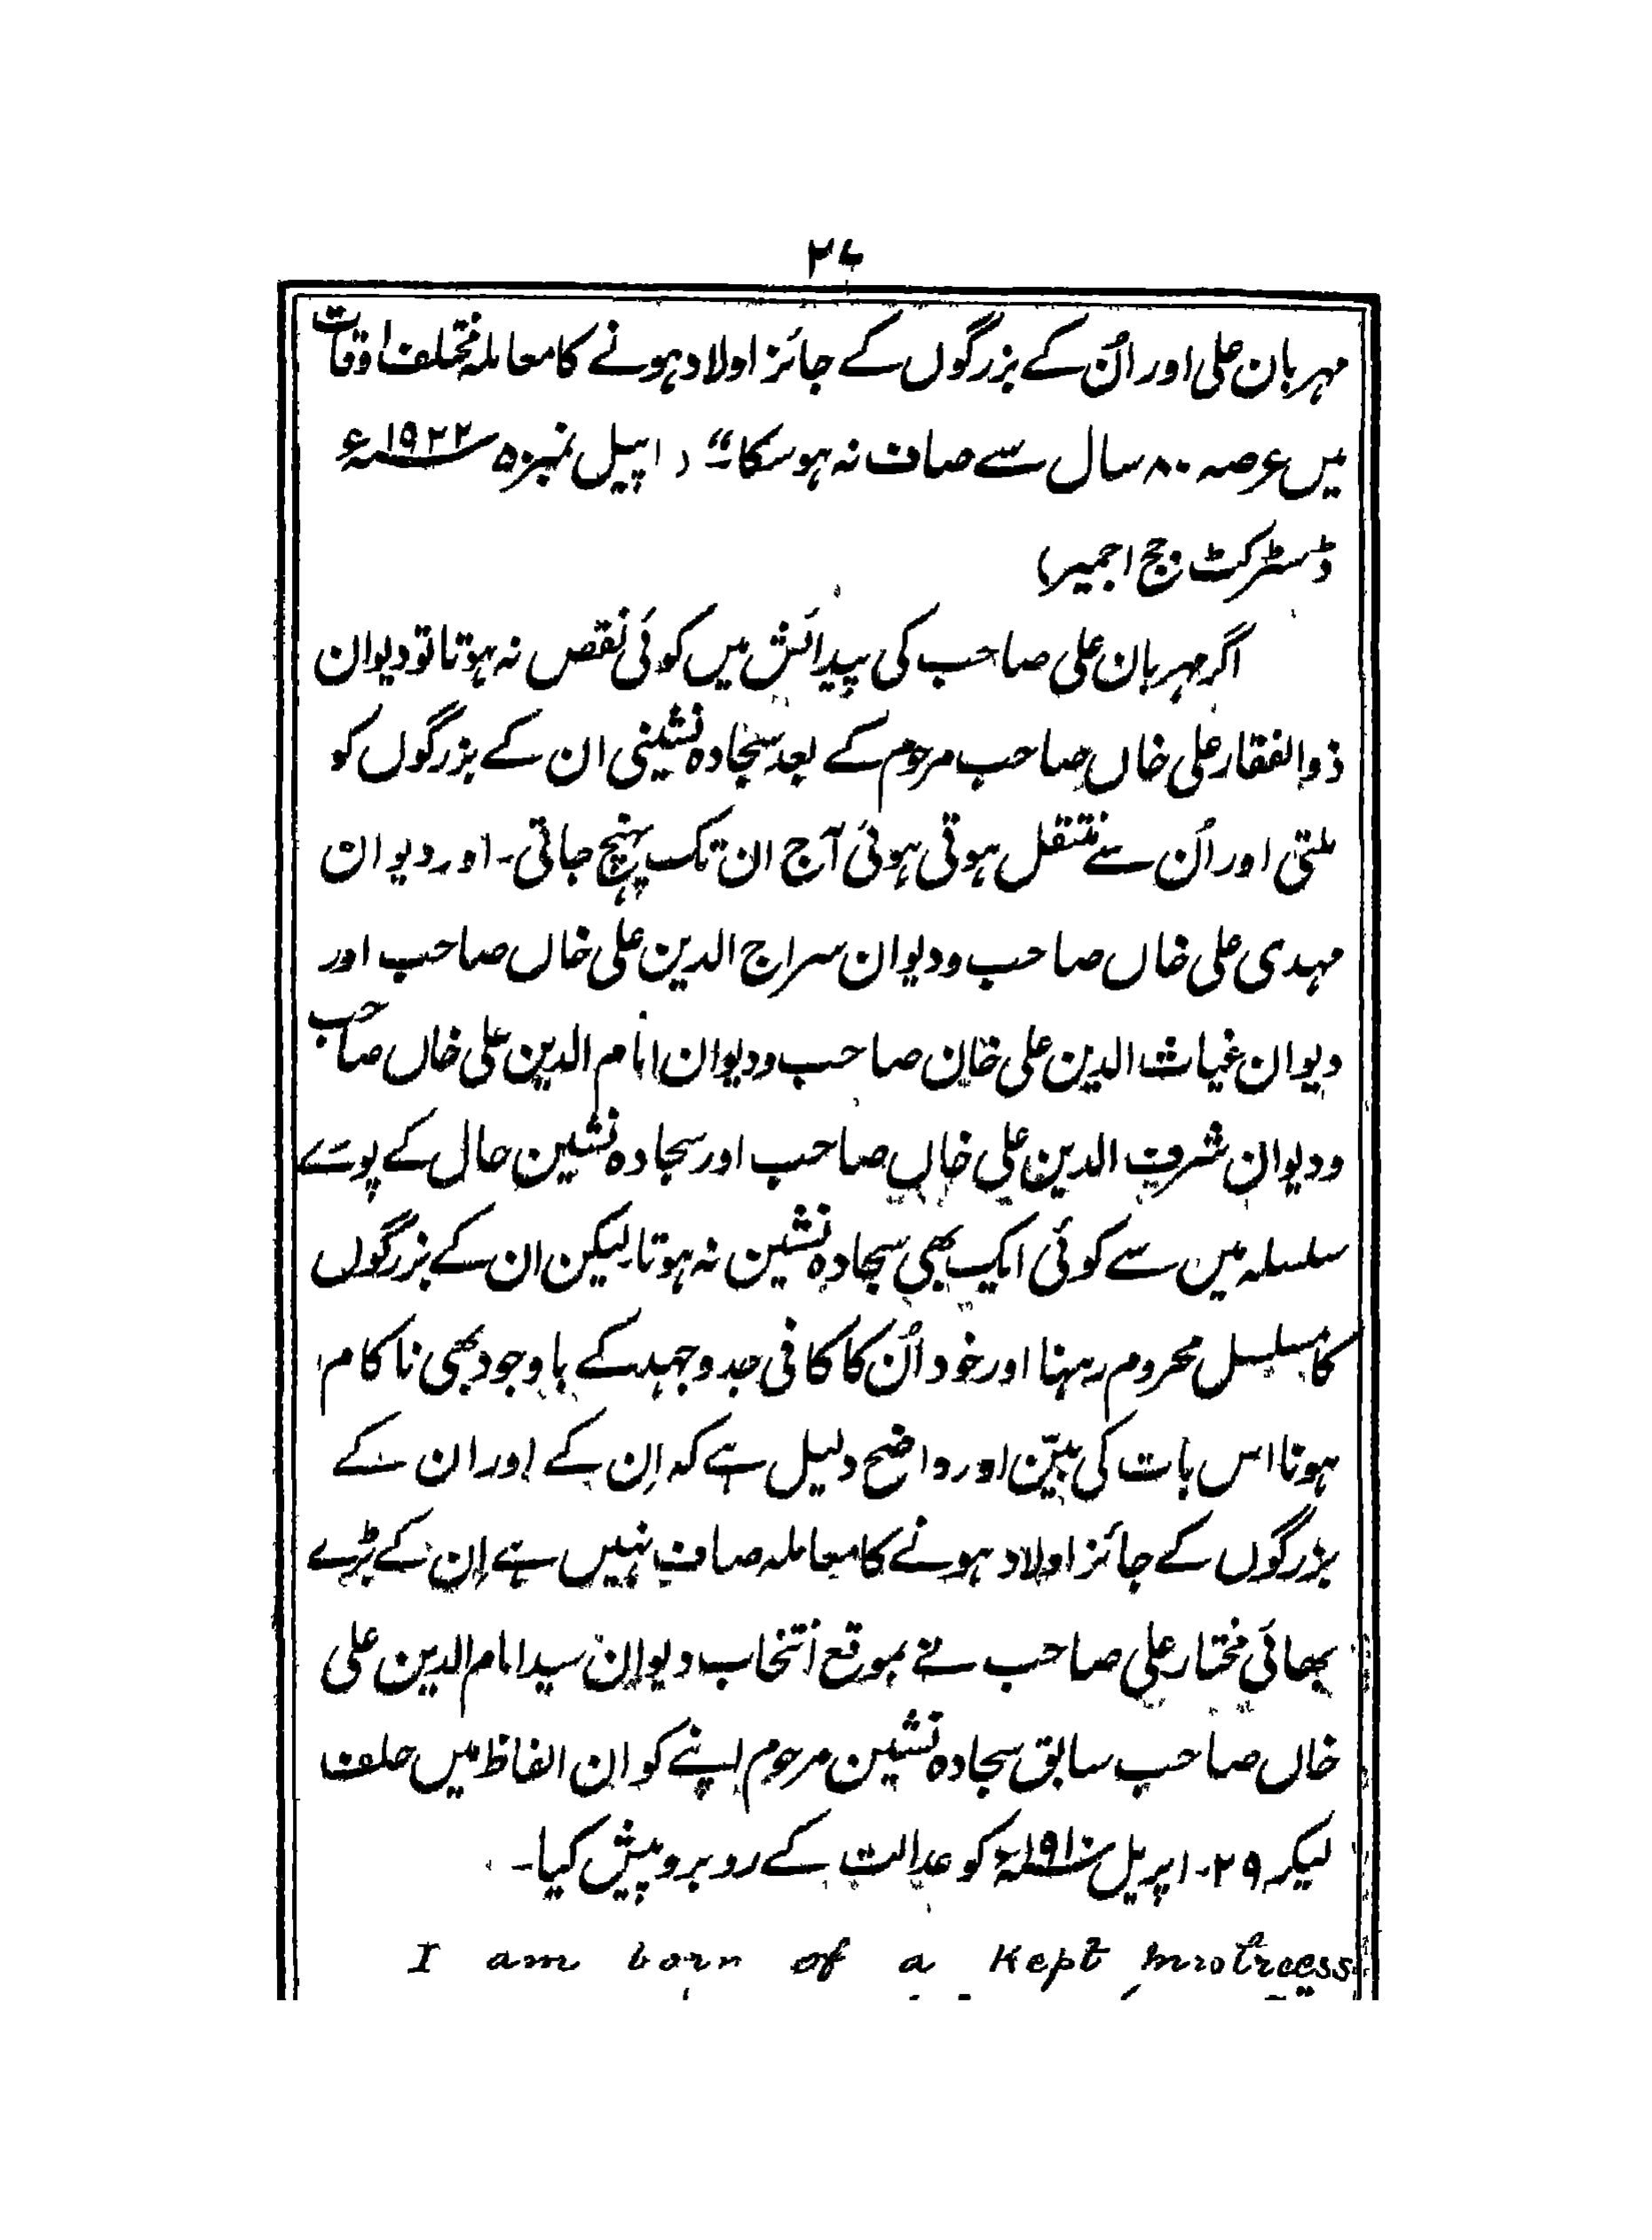 ۲۷
مہربان علی اور اُن کے بزرگوں کے جائز اولاد ہونے کا معاملہ مختلف اوقات
میں عرصہ ۸۰ سال سے صاف نہ ہوسکا۔" (اپیل نمبر ۵ ۱۹۲۲ء
ڈسٹرکٹ جج اجمیر)
اگر مہربان علی صاحب کی پیدائش میں کوئی نقص نہ ہوتا تو دیوان
ذوالفقار علی خاں صاحب مرحوم کے بعد سجادہ نشینی ان کے بزرگوں کو
ملتی اور اُن سے منتقل ہوتی ہوئی آج ان تک پہنچ جاتی۔ اور دیوان
مہدی علی خاں صاحب و دیوان سراج الدین علی خاں صاحب اور
دیوان غیاث الدین علی خان صاحب و دیوان امام الدین علی خاں صاحب
و دیوان شرف الدین علی خاں صاحب اور سجادہ نشین حال کے پورے
سلسلہ میں سے کوئی ایک بھی سجادہ نشین نہ ہوتا۔ لیکن ان کے بزرگوں
کا مسلسل محروم رہنا اور خود اُن کا کافی جدوجہد کے باوجود بھی ناکام
ہونا اس بات کی بیّن اور واضح دلیل ہے کہ اِن کے اور ان کے
بزرگوں کے جائز اولاد ہونے کا معاملہ صاف نہیں ہے اِن کے بڑے
بھائی مختار علی صاحب نے بموقع انتخاب دیوان سید امام الدین علی
خاں صاحب سابق سجادہ نشین مرحوم اپنے کو ان الفاظ میں حلف
لیکر ۲۹۔ اپریل ۱۹۱۰ء کو عدالت کے روبرو پیش کیا۔
I am born of a Kept mistreess